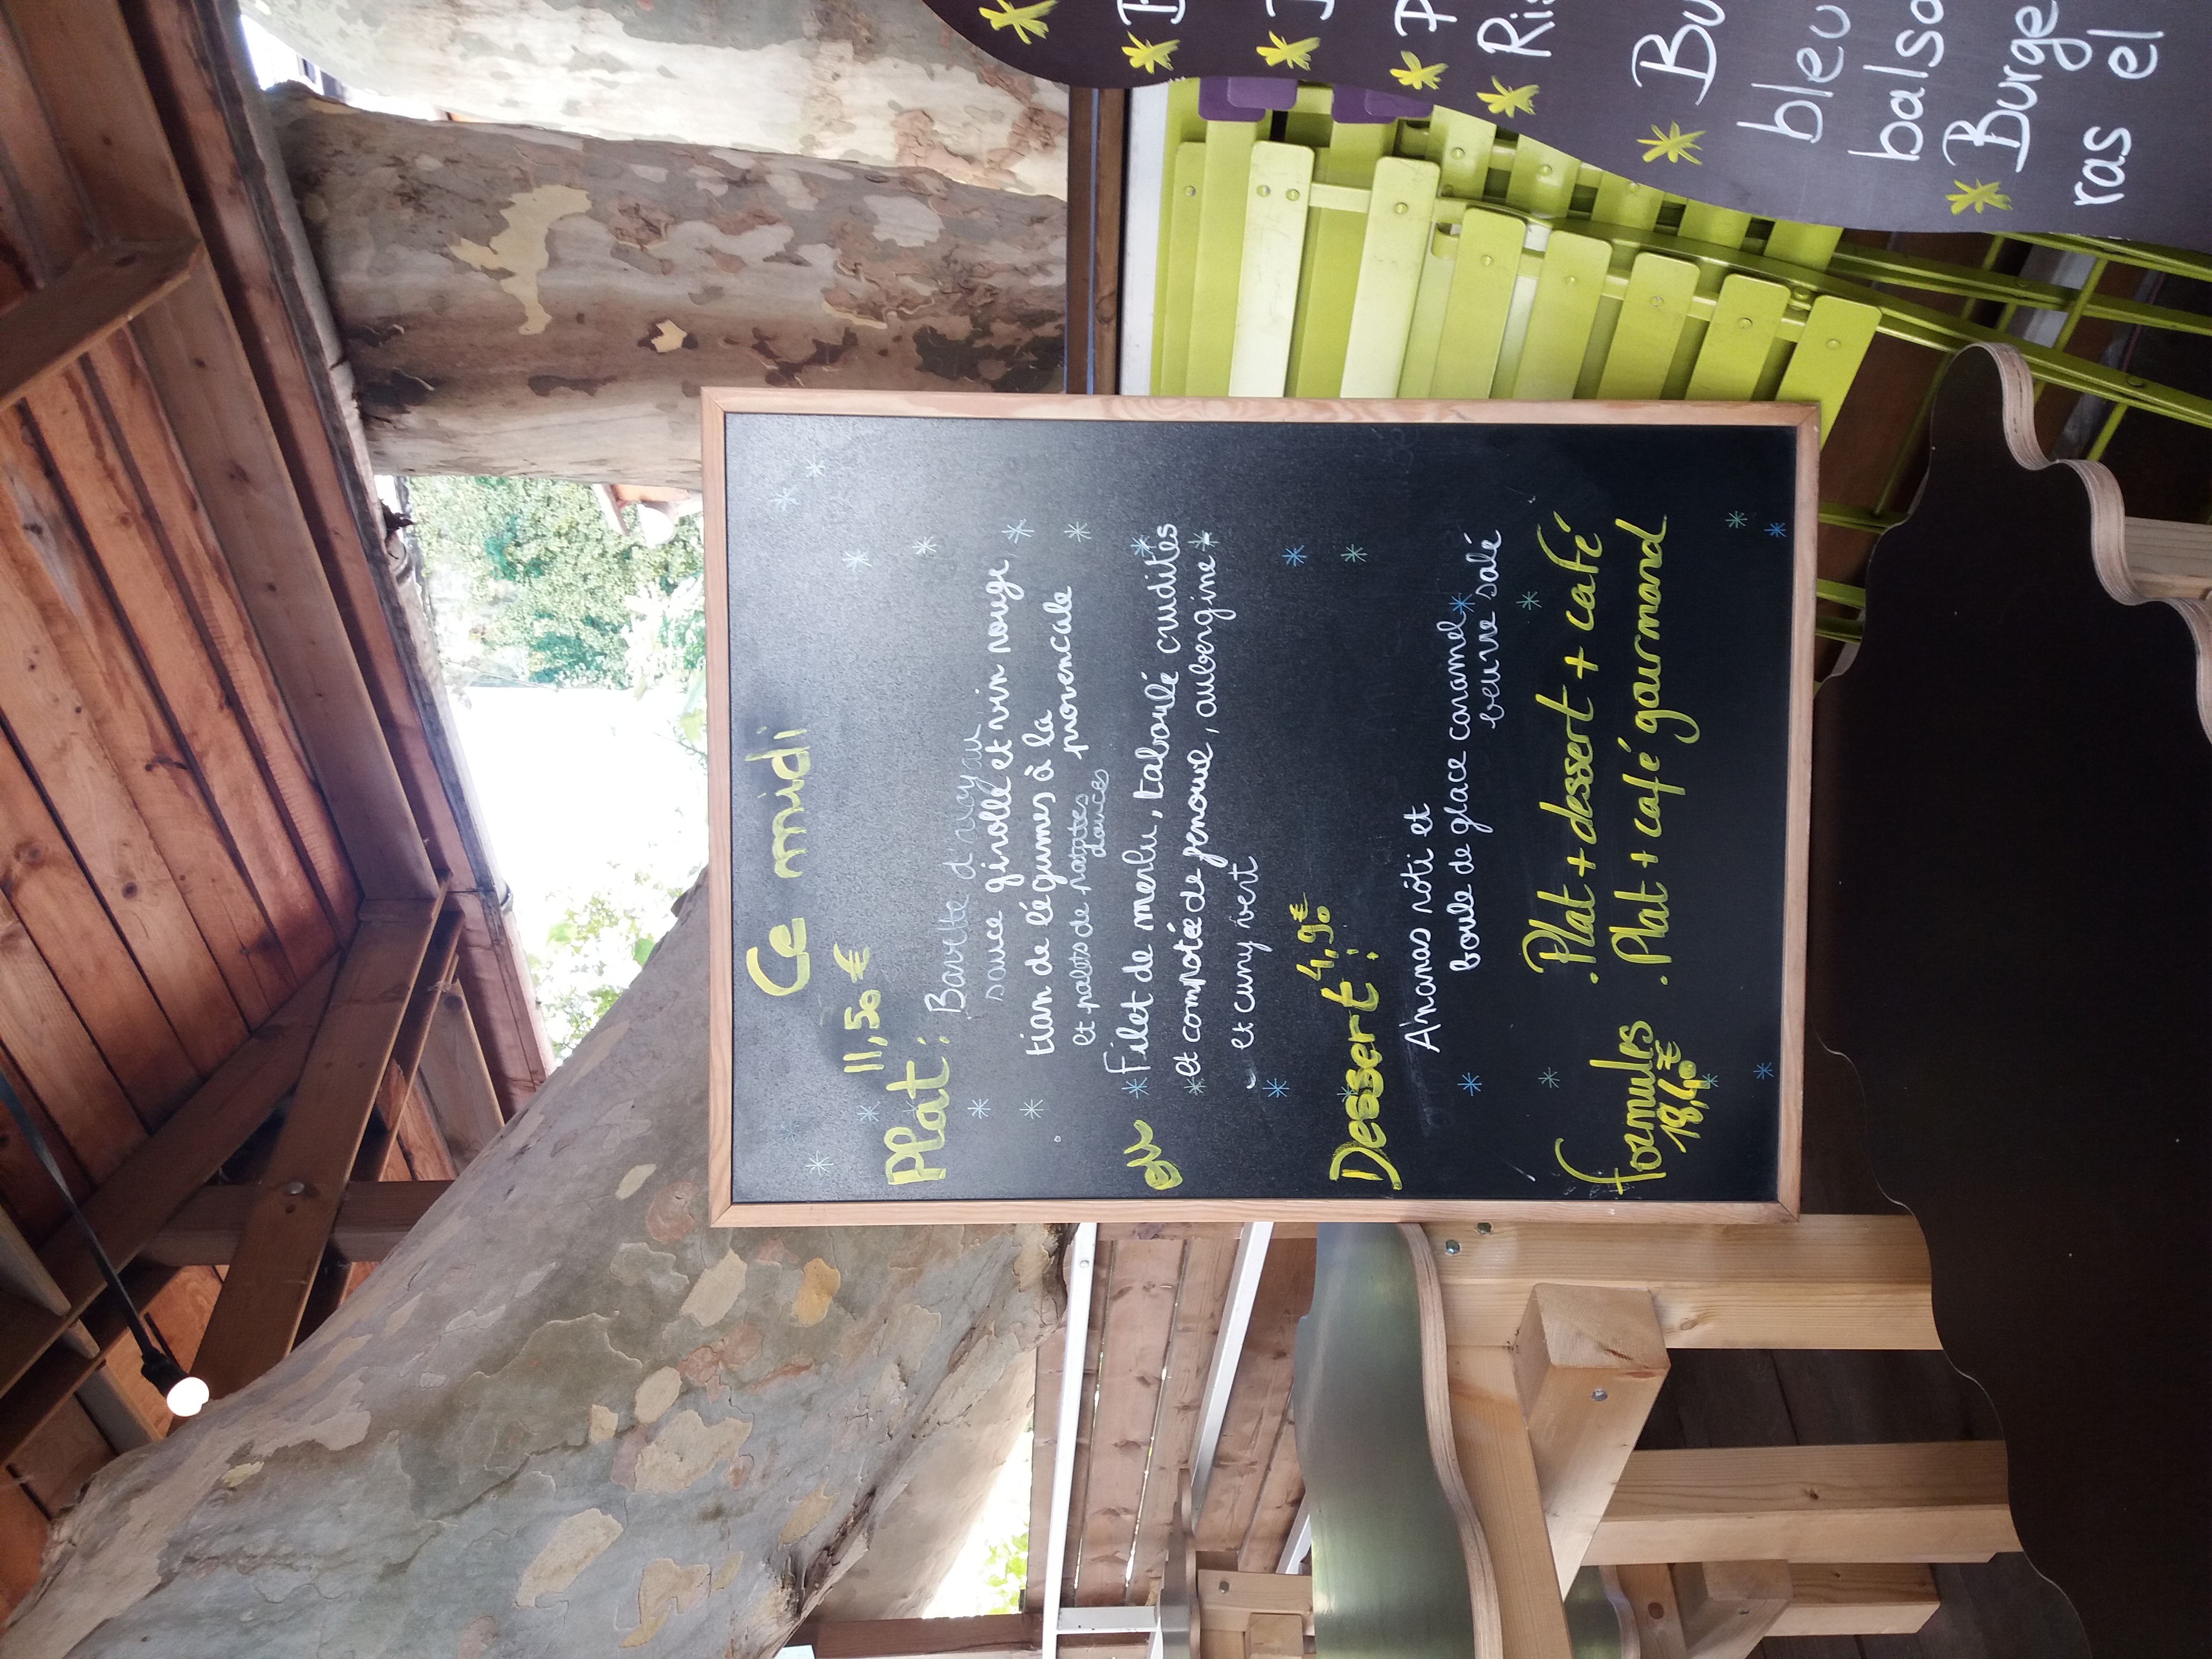 Ce midi
11,50 €
Plat :
Bavette d'aloyau
sauce girolle et vin rouge
tian de légumes à la
provencale
et palets de patates
douces
ou
Filet de merlu, taboulé crudités
et compotée de fenouil, aubergine
et curry vert
4,90€
Dessert :
Ananas rôti et
boule de glace caramel
beurre salé
formules
18,40€
.Plat + dessert + café
.Plat + café gourmand
B
P
Ris
Bu
bleu
balsa
Burge
ras el